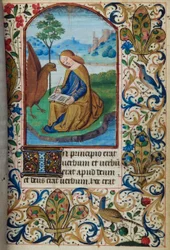 In principio erat
uerbum et uerbū
erat apud deum
et deus erat uerbum. hoc erat